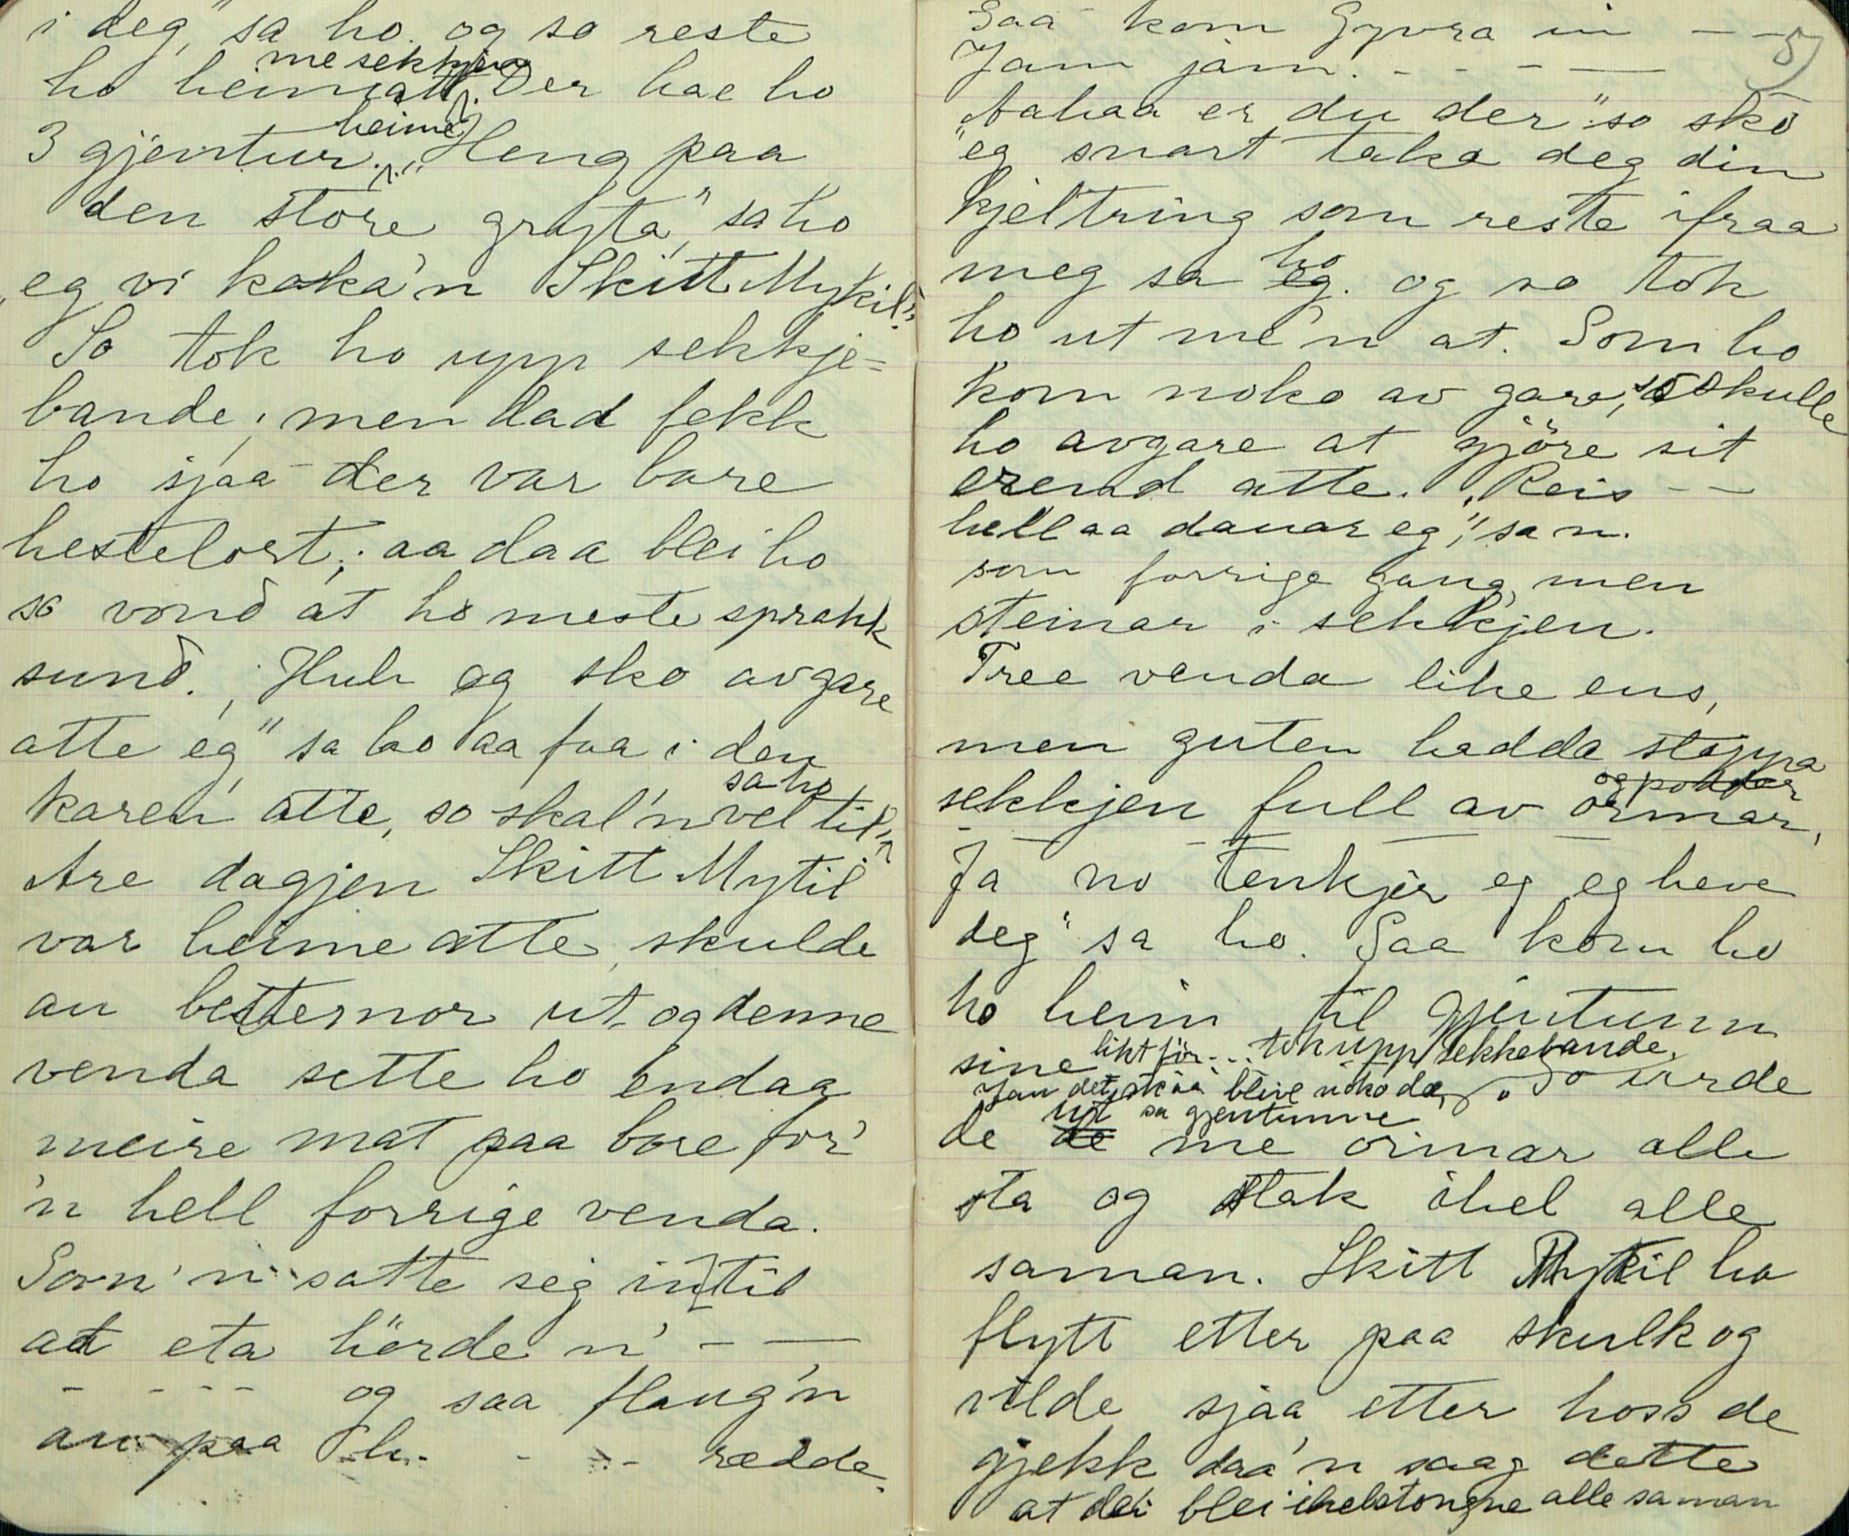 i deg," sa ho. og so reste
me sekkjen
ho heimatt. Der hae ho
heime
3 gjentur. "Heng paa
den store gryta," sa ho
"eg vi koka'n Skitt Mykil."
So tok ho upp sekkje=
bande; men dad fekk
ho sjaa der var bare
hestelort; aa daa blei ho
so vond at ho meste sprakk
sund. "Huh eg sko avgare
atte eg" sa ho aa faa i den
sa ho
karen atte, so skal'n vel til"
Are dagjen Skitt Mytil
var heime atte, skulde
an bestemor ut og denne
venda sette ho endaa
meire mat paa bore for'
'n hell forrige venda.
Som'n satte seg intil
at eta hörde n' - —
- - - - og saa flaug'n
an paa h. - - - rædde.
5)
Saa kom Gyvra in — —
Jam jam. - - - —
"Aahaa er du der" so sko
"eg snart taka deg din
kjeltring som reste ifraa
ho
meg sa eg. og so tok
ho ut me'n at. Som ho
kom noko av gare, so skulle
ho avgare at gjöre sit
erend atte. "Reis —
hell aa danar eg," sa n.
som forrige gang, men
steinar i sekkjen.
Tree venda like ens,
men guten hadde stoppa
og podder
sekkjen full av ormar,
Ja no tenkjer eg eg heve
deg" sa ho. Saa kom ho
ho heim til gjentunn
sine likt för... tok upp sekkebande.
Jau det skaa blive noko da, So urde
ut sa gjentunne
de de me ormar alle
sta og stak ihel alle
saman. Skitt Mykil ha
flytt etter paa skulk og
vilde sjaa etter hoss de
gjekk daa'n saag dette
at dei blei ihelstongne alle saman